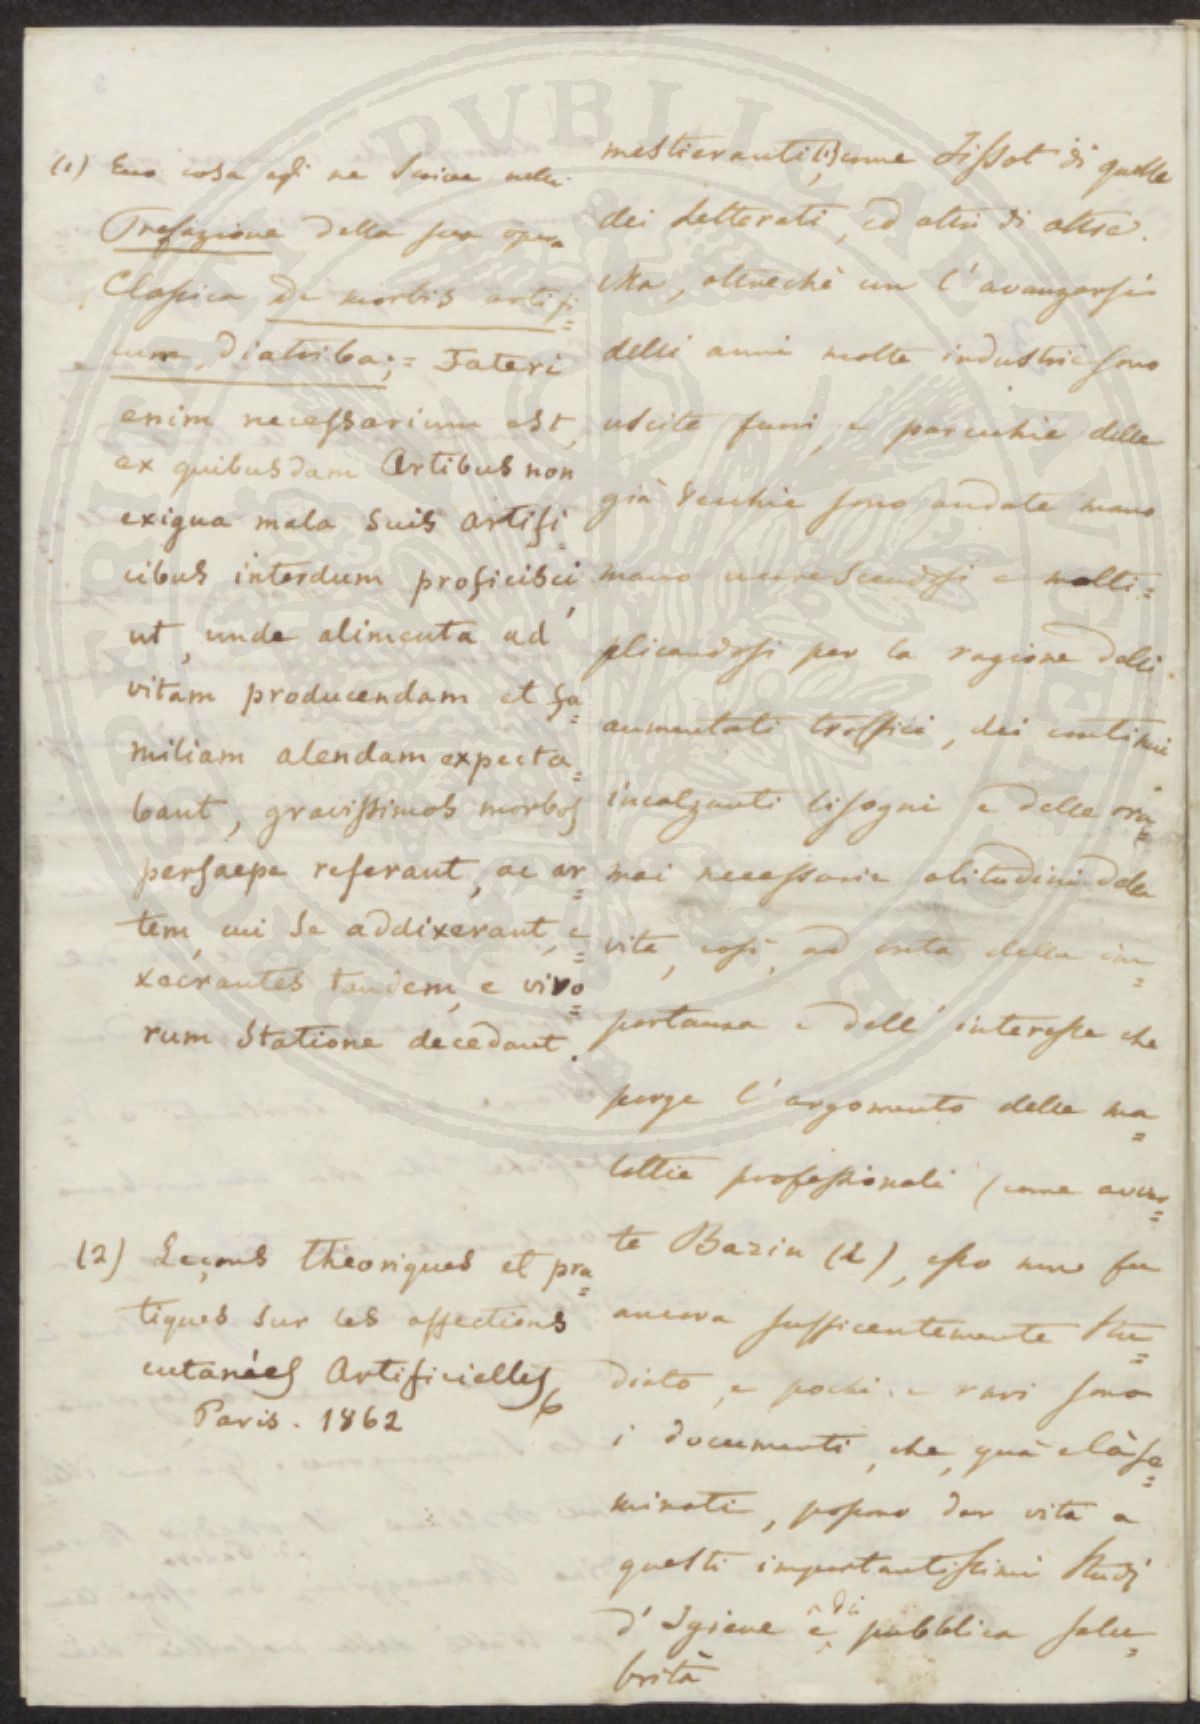 (1) Ecco cosa egli ne scrive nella
Prefazione della sua opera
Classica De morbis artifi=
cum, diatriba; = Fateri
enim necessarium est,
ex quibusdam Artibus non
exigua mala suis artifi=
cibus interdum proficisci,
ut, unde alimenta ad
vitam producendam et fa=
miliam alendam expecta=
bant, gravissimos morbos
persaepe referant, ac ar=
tem, cui se addixerant, e=
xecrantes tandem, e vivo=
rum statione decedant.
(2) Leçons théoriques et pra=
tiques sur les affections
cutanées Artificielles
Paris. 1862
mestieranti (1), come Tissot di quelle
dei Letterati, ed altri di altre.
Ma, oltrechè con l'avanzarsi
delli anni molte industrie sono
uscite fuori, e parecchie delle
già vecchie sono andate mano
mano accrescendosi e molti=
plicandosi per la ragione delli
aumentati traffici, dei continui
incalzanti bisogni e delle ora=
mai necessarie abitudini della
vita, così, ad onta della im=
portanza e dell'interesse che
porge l'argomento delle ma=
lattie professionali (come avver=
te Bazin (2), esso non fu
ancora sufficentemente stu=
diato, e pochi e rari sono
i documenti, che, quà e là se=
minati, possono dar vita a
questi importantissimi studj
d'Igiene e di pubblica salu=
brità